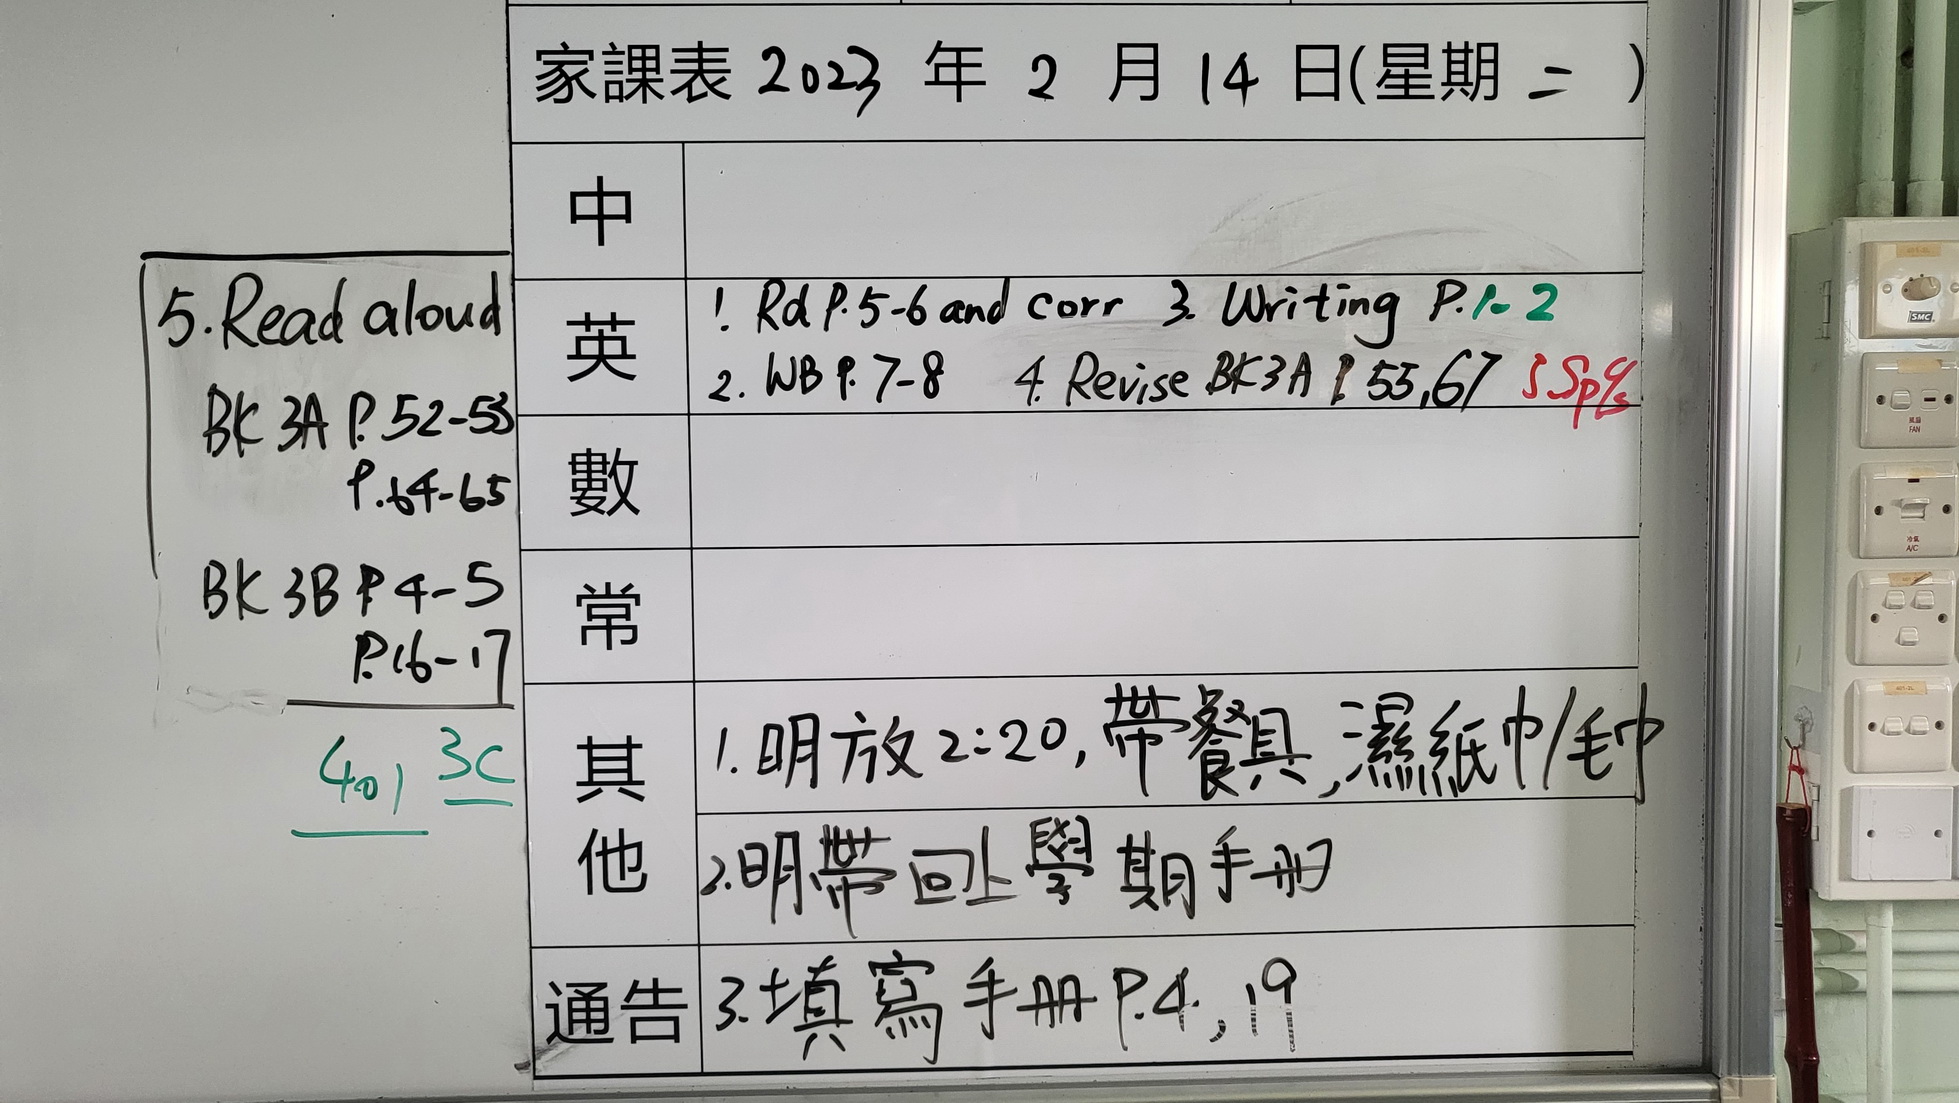 家課表 2023 年 2 月 14 日(星期 二 )
中
英
1. Rd P.5-6 and corr 3. Writing P.1-2
2. WB P.7-8 4. Revise BK3A P.55,67
數
常
其他
1.明放2:20,帶餐具,濕紙巾/毛巾
2.明帶回上學期手册
通告
3.填寫手册P.4,19
5.Read aloud
BK 3A P.52-53
P.64-65
BK 3B P.4-5
P.16-17
401 3C
SMC
FAN
A/C